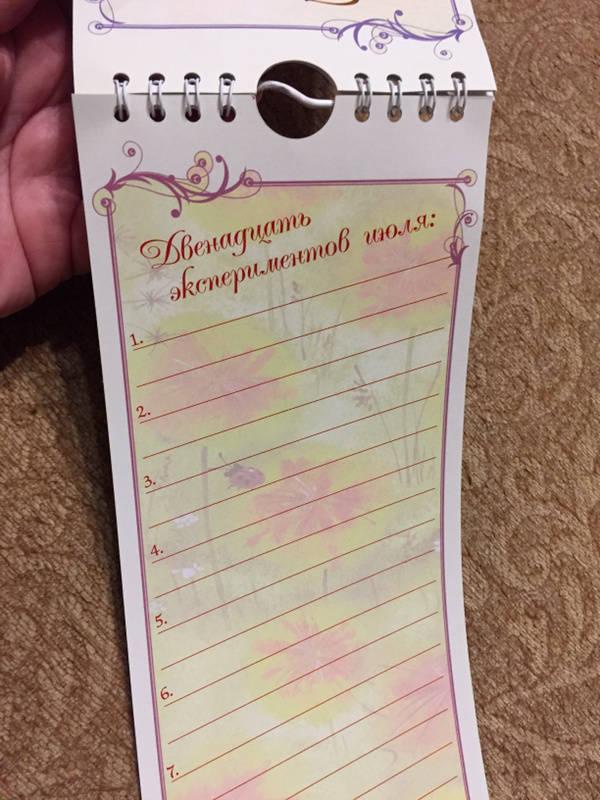 Двенадцать
экспериментов июля:
1.
2.
3.
4.
5.
6.
7.